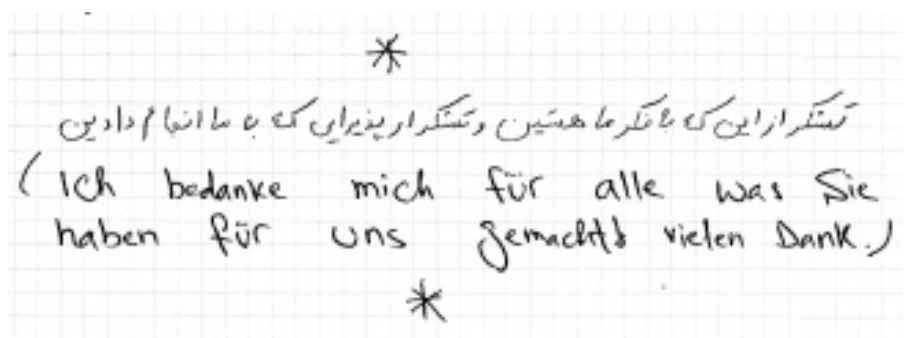 *
تشکر از این که بافکر ما هستین و تشکر از پذیرایی که با ما انجام دادین
(Ich bedanke mich für alle was Sie
haben für uns gemacht vielen Dank.)
*